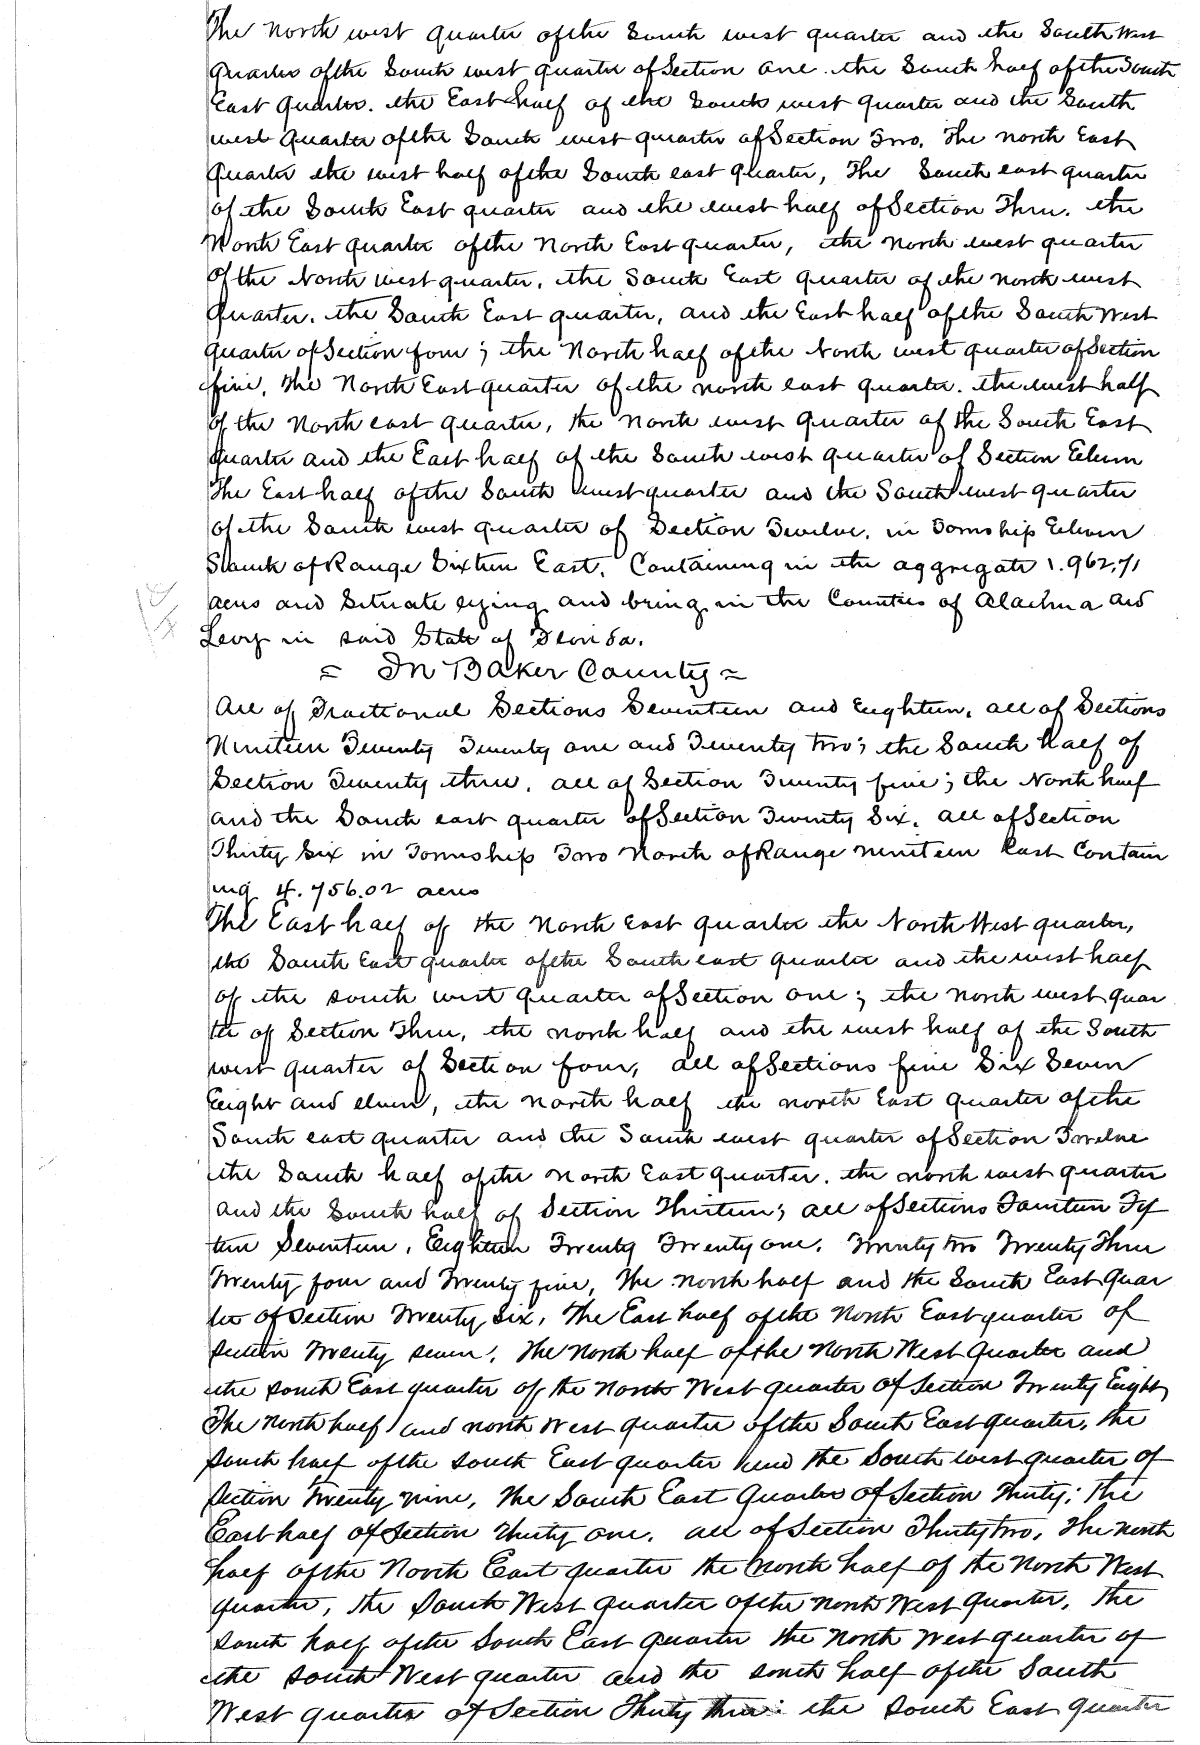 The North west quarter of the South west quarter and the South West
quarter of the South west quarter of Section one. the South half of the South
East Quarter. the East half of the South west quarter and the South
west quarter of the South west quarter of Section Two, The north East
Quarter the west half of the South east quarter, The South east quarter
of the South East quarter and the west half of Section Three. the
North East quarter of the North East quarter, the north west quarter
of the North west quarter, the South East quarter of the north west
Quarter. the South East quarter, and the East half of the South West
quarter of Section four; the North half of the North west quarter of Section
five, the North East quarter of the north east quarter. the west half
of the North east quarter, the north west quarter of the South East
quarter and the East half of the South west quarter of Section Eleven
The East half of the South west quarter and the South west quarter
of the South west quarter of Section Twelve, in Township Eleven
South of Range Sixteen East. Containing in the aggregate 1.962,71
acres and Situate lying and being in the Counties of Alachua and
Levy in said State of Florida.
= In Baker County =
All of Fractional Sections Seventeen and Eighteen, all of Sections
Nineteen Twenty Twenty one and Twenty two; the South half of
Section Twenty three, all of Section Twenty five; the North half
and the South east quarter of Section Twenty Six, all of Section
Thirty Six in Township Two North of Range nineteen East Contain
ing 4.756.02 acres
The East half of the North East quarter the North West quarter,
the South East quarter of the South east quarter and the west half
of the south west quarter of Section one; the north west quar
ter of Section Three, the north half and the west half of the South
west quarter of Section four, all of Sections five Six Seven
Eight and eleven, the north half the north East quarter of the
South east quarter and the South west quarter of Section Twelve
the South half of the North East quarter. the north west quarter
and the South half of Section Thirteen; all of Sections Fourteen Fif
teen Seventeen, Eighteen Twenty Twenty one. Twenty two Twenty Three
Twenty four and Twenty five, The north half and the South East Quar
ter of Section Twenty Six, The East half of the North East quarter of
Section Twenty seven. The North half of the North West Quarter and
the South East quarter of the North West quarter of Section Twenty Eight,
The North half and north West quarter of the South East quarter, the
South half of the South East quarter and the South west quarter of
Section Twenty nine, The South East Quarter of Section Thirty; the
East half of Section Thirty one. all of Section Thirty two, The north
half of the North East quarter the north half of the North West
quarter, the South West quarter of the north West Quarter, the
South half of the South East quarter the north west quarter of
the South West quarter and the south half of the South
West quarter of Section Thirty three: the South East quarter